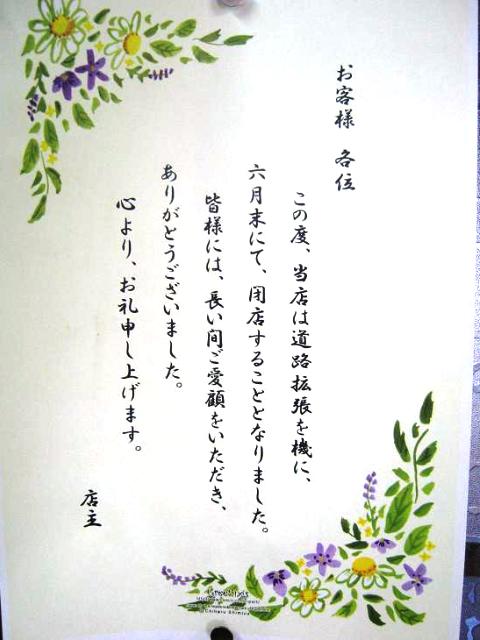 お客様　各位
この度、当店は道路拡張を機に、
六月末にて、閉店することとなりました。
皆様には、長い間ご愛顧をいただき、
ありがとうございました。
心より、お礼申し上げます。
店主